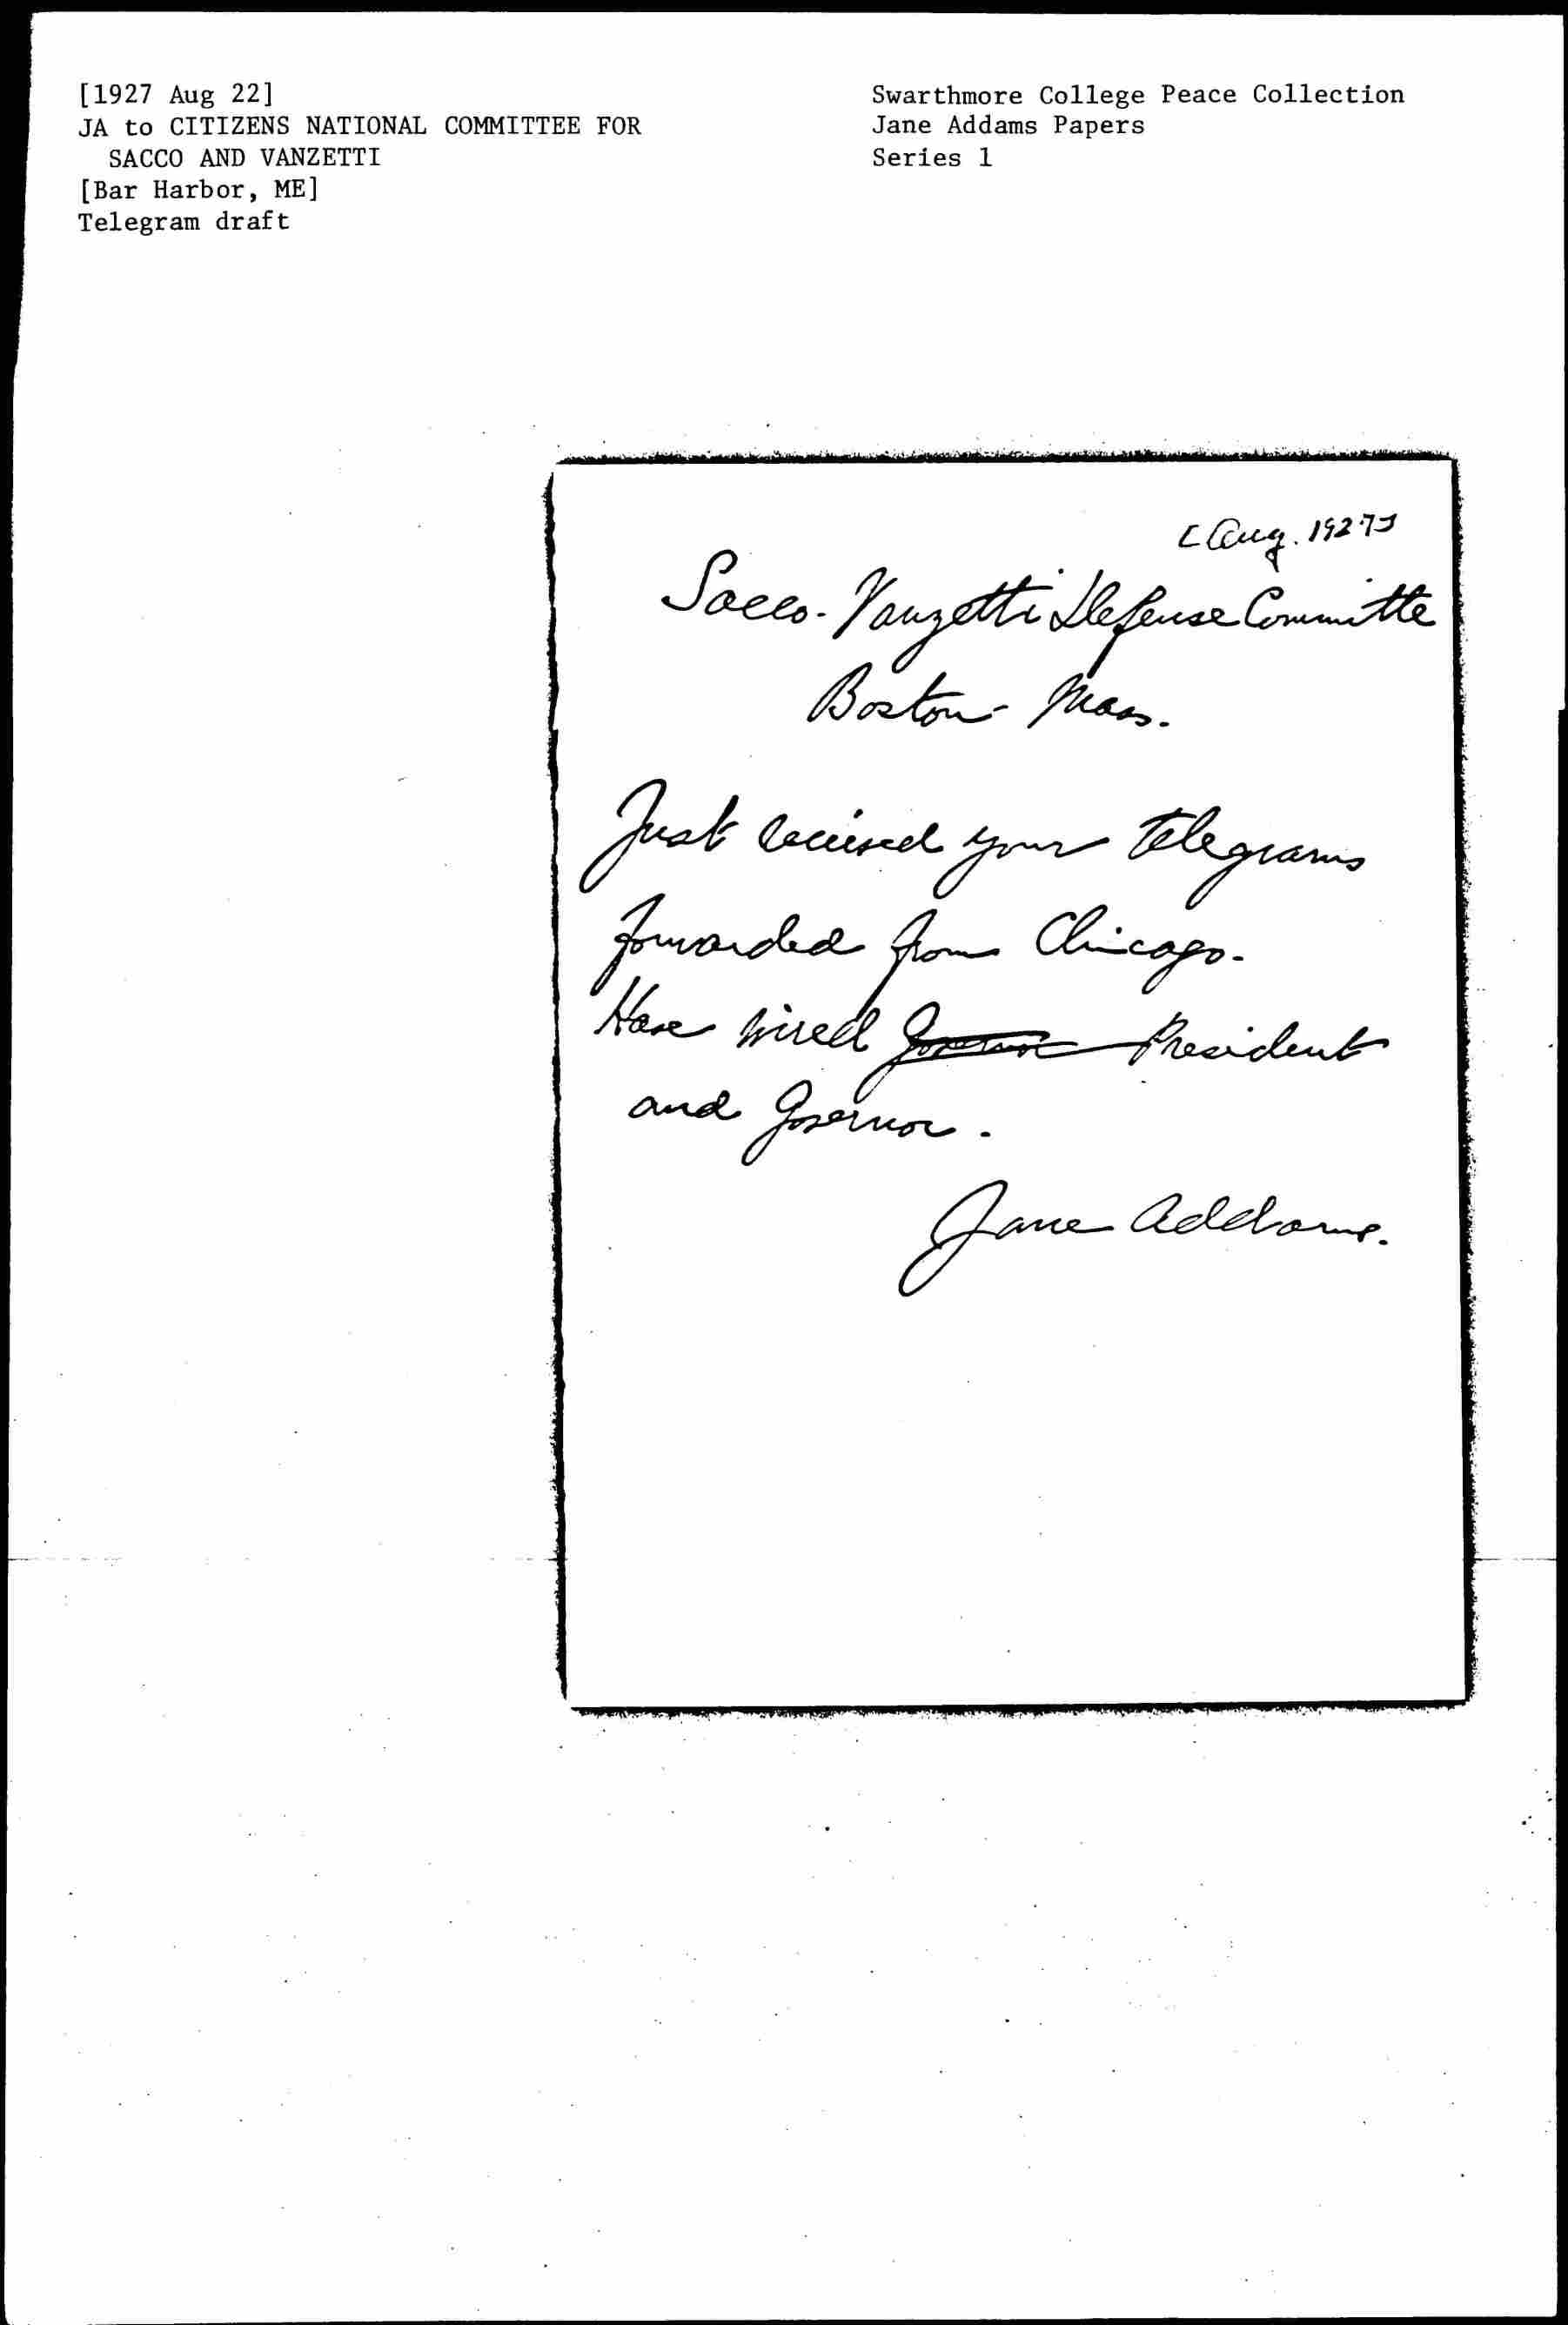 [1927 Aug 22]
JA to CITIZENS NATIONAL COMMITTEE FOR
SACCO AND VANZETTI
[Bar Harbor, ME]
Telegram draft
Swarthmore College Peace Collection
Jane Addams Papers
Series 1
[Aug. 1927]
Sacco-Vanzetti Defense Committe
Boston - Mass.
Just received your telegrams
forwarded from Chicago.
Have wired Governor President
and Governor.
Jane Addams.